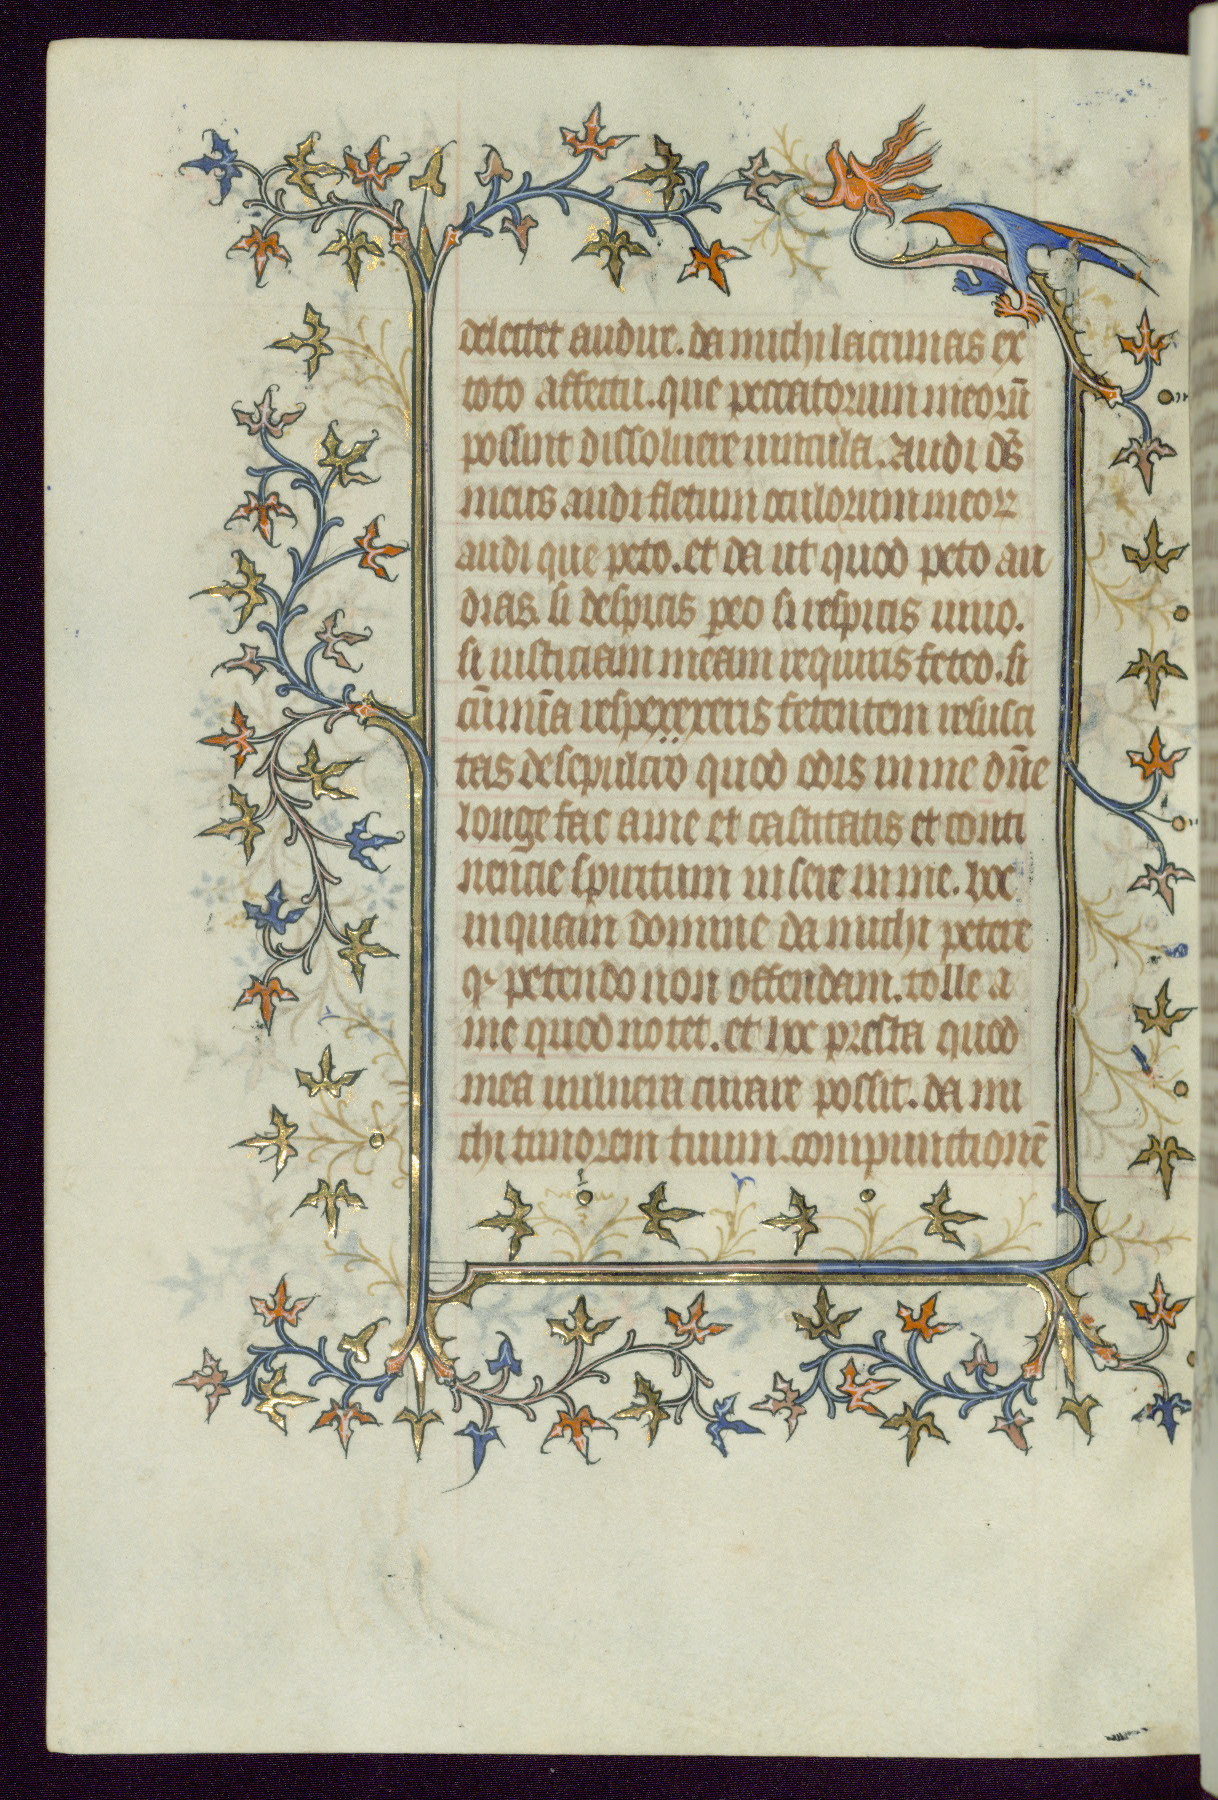 delectet audire. da michi lacrimas ex
toto affectu. que peccatorum meorū
possint dissoluere uincula. Audi ds̄
meus audi fletum oculorum meoꝝ
audi que peto. et da ut quod peto au
dias. si despicis pereo si respicis uiuo.
si iusticiam meam requiris feteo. si
cū mīa respexexeris fetentem resusci
tas de sepulcro quod odis in me dn̄e
longe fac a me et castitatis et conti
nencie spiritum in sere in me. hoc
inquam domine da michi petere
qͥ petendo non offendam. tolle a
me quod nocet. et hoc presta quod
mea uulnera curare possit. da mi
chi timorem tuum. compunctionē